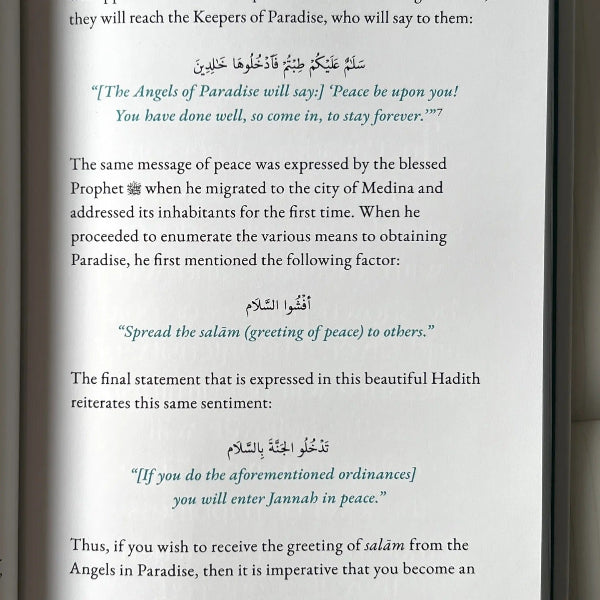 they will reach the Keepers of Paradise, who will say to them:
سَلَٰمٌ عَلَيْكُمْ طِبْتُمْ فَٱدْخُلُوهَا خَٰلِدِينَ
“[The Angels of Paradise will say:] ‘Peace be upon you!
You have done well, so come in, to stay forever.’”7
The same message of peace was expressed by the blessed
Prophet ﷺ when he migrated to the city of Medina and
addressed its inhabitants for the first time. When he
proceeded to enumerate the various means to obtaining
Paradise, he first mentioned the following factor:
أفْشُوا السَّلَام
“Spread the salām (greeting of peace) to others.”
The final statement that is expressed in this beautiful Hadith
reiterates this same sentiment:
تَدْخُلُو الجَنَّةَ بِالسَّلَام
“[If you do the aforementioned ordinances]
you will enter Jannah in peace.”
Thus, if you wish to receive the greeting of salām from the
Angels in Paradise, then it is imperative that you become an